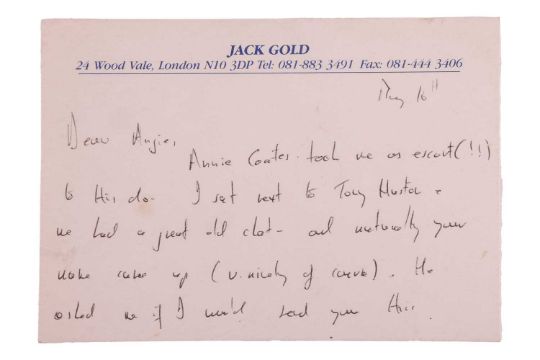 JACK GOLD
24 Wood Vale, London N10 3DP Tel: 081-883 3491 Fax: 081-444 3406
May 16th
Dear Angie,
Annie Coates took me as escort (!!)
to this do. I sat next to Tony &
we had a great old chat - and naturally your
name came up (v. nicely of course). He
asked me if I would send you this.